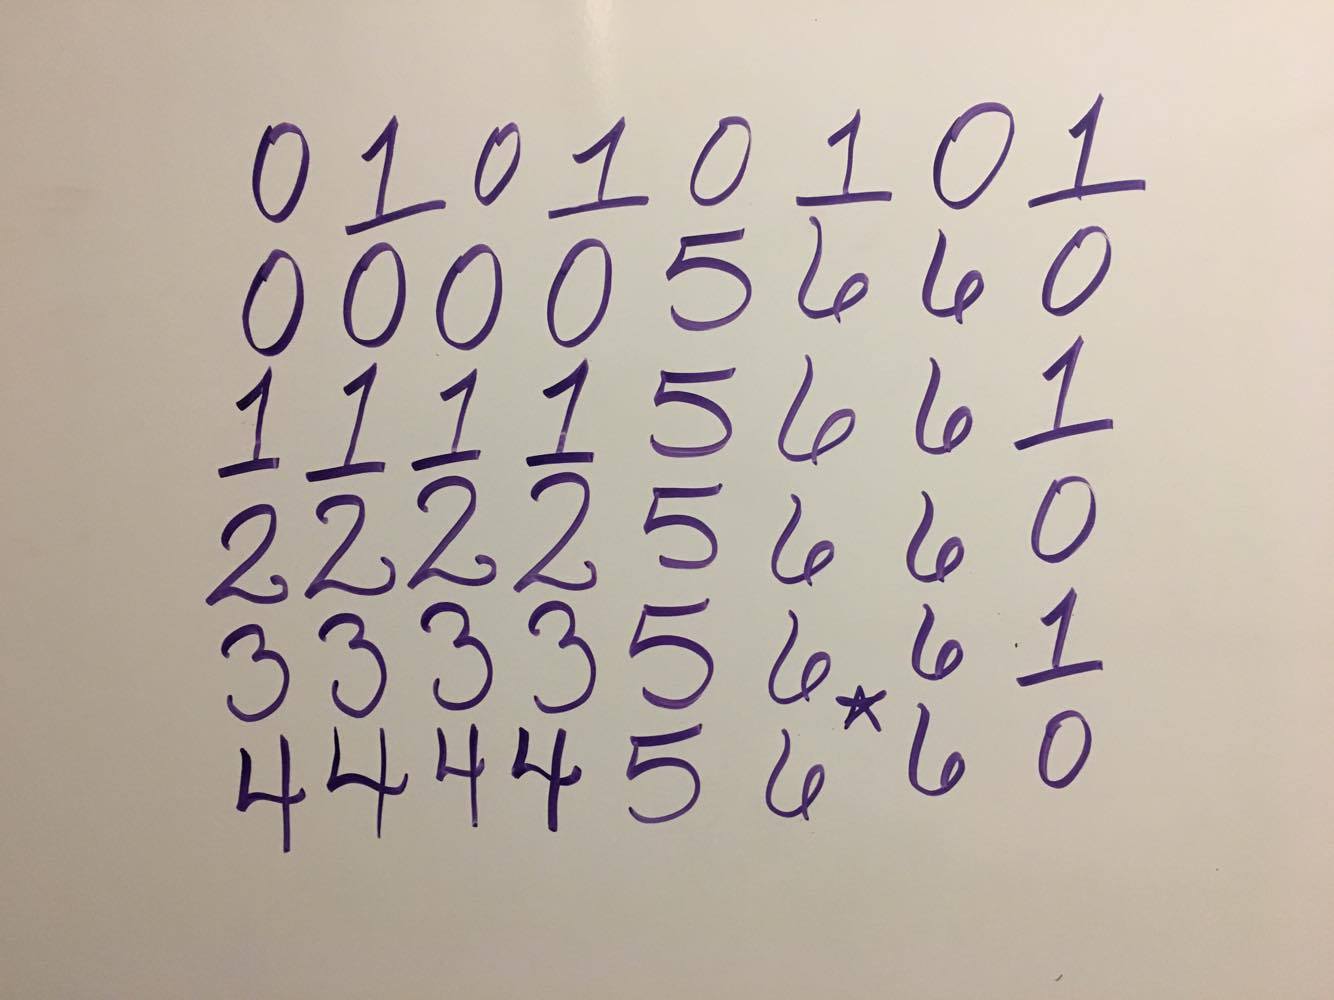 0 1 0 1 0 1 0 1
0 0 0 0 5 6 6 0
1 1 1 1 5 6 6 1
2 2 2 2 5 6 6 0
3 3 3 3 5 6 6 1
4 4 4 4 5 6 ★ 6 0